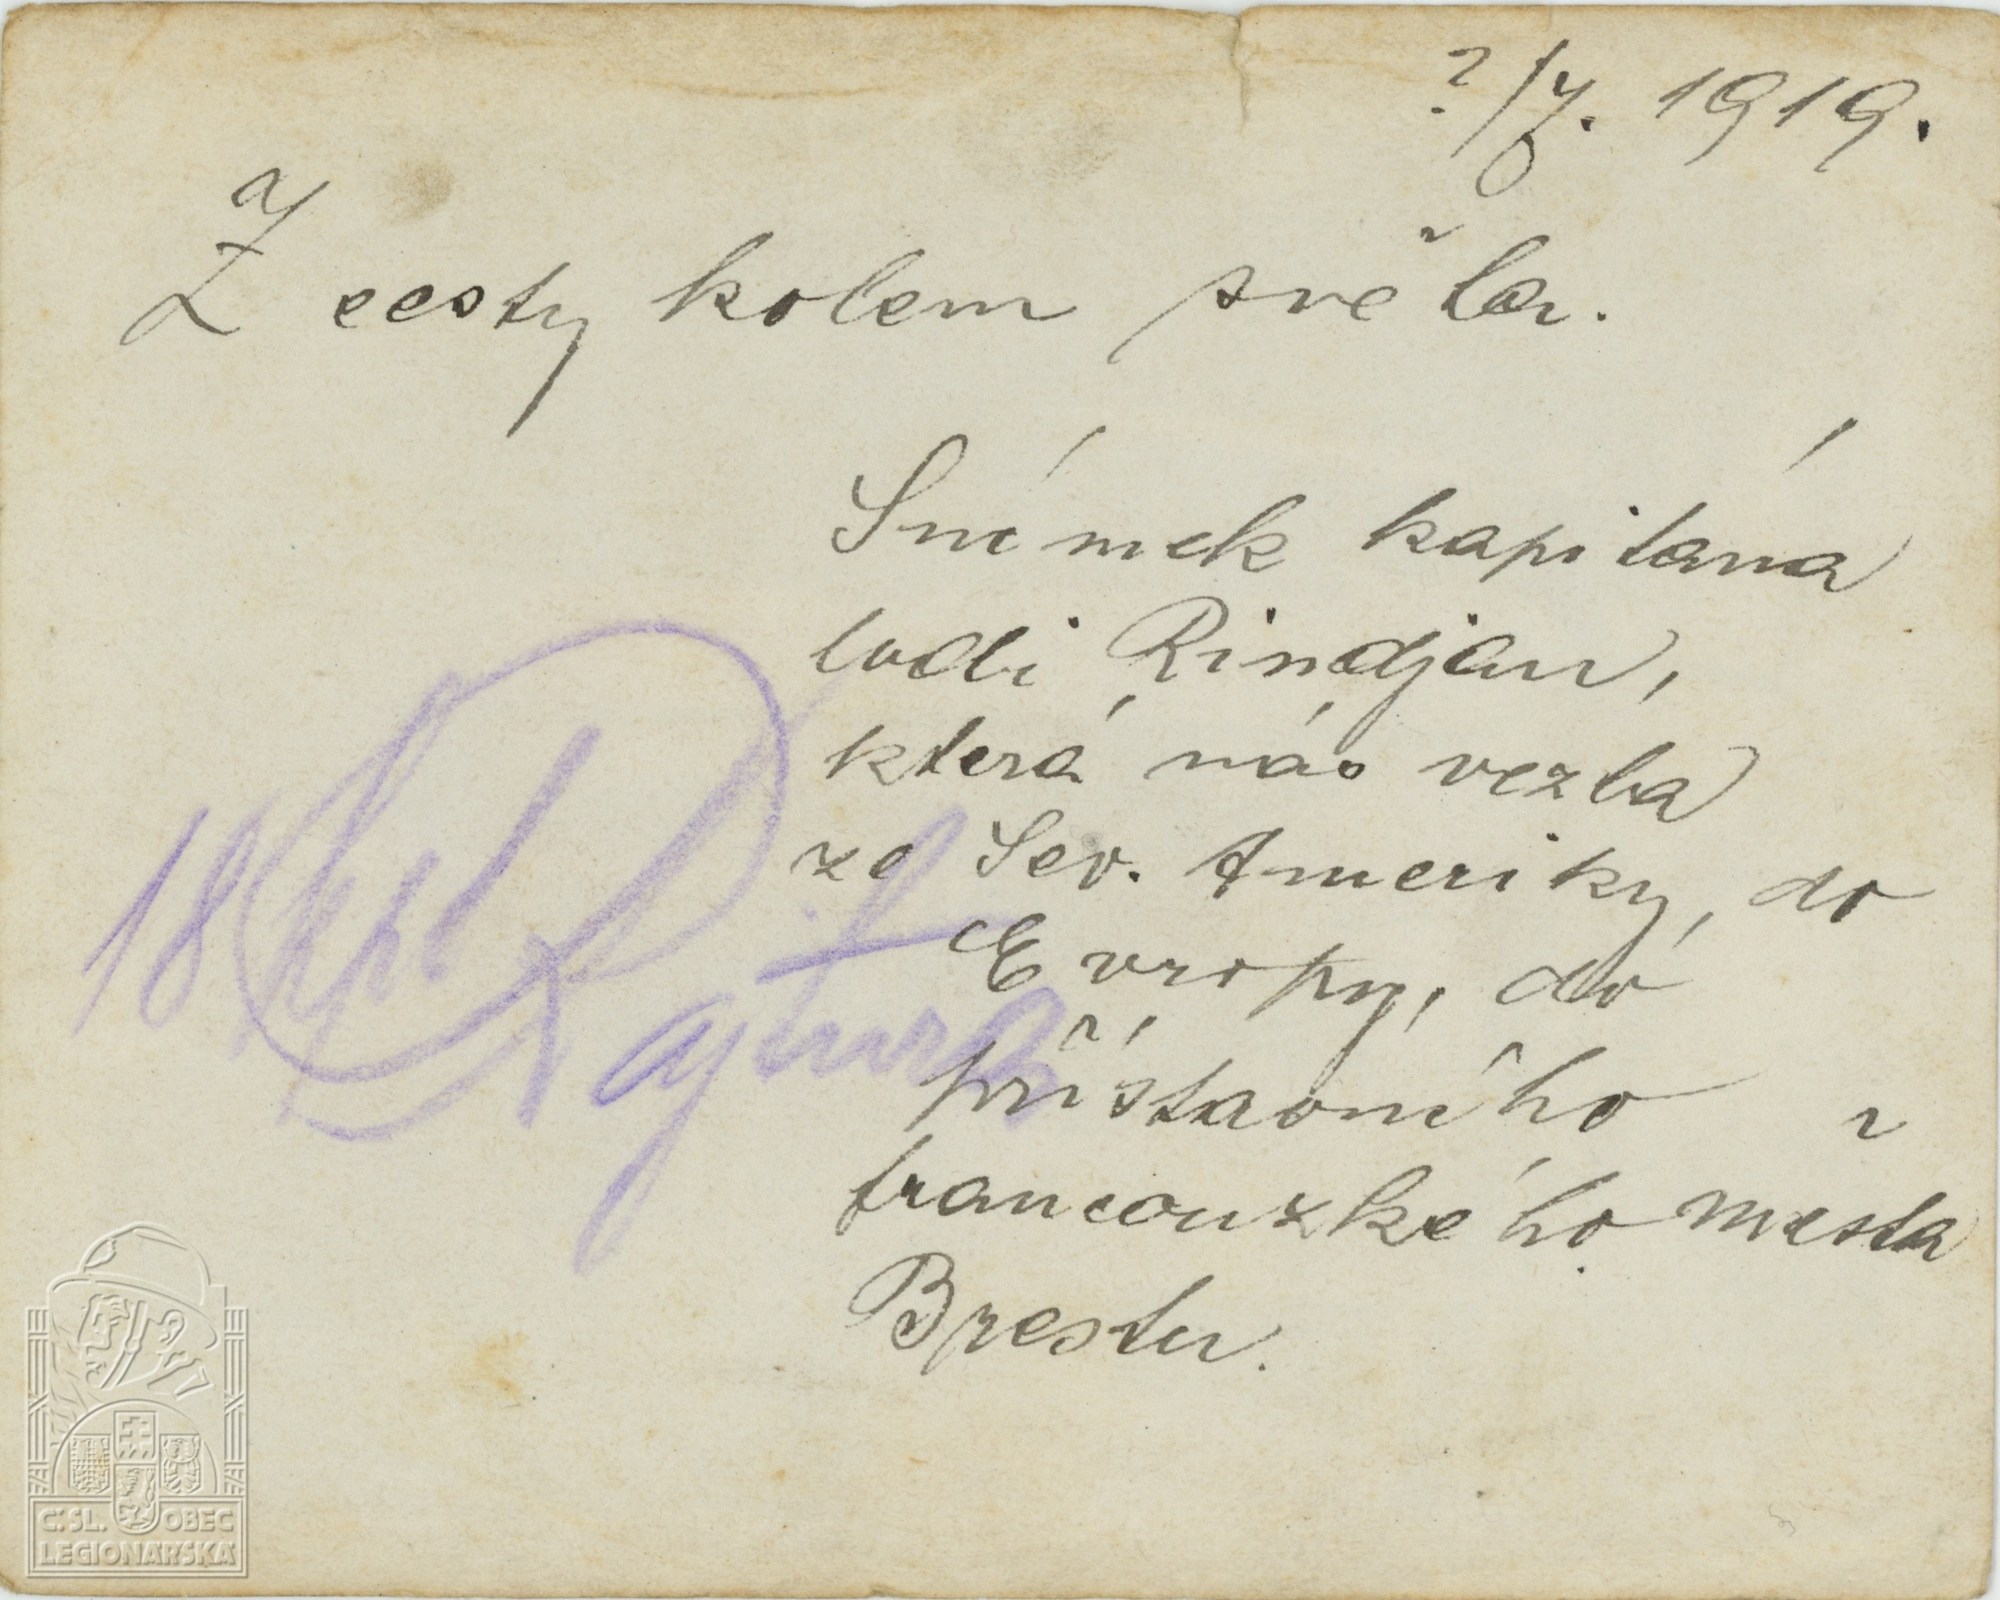 ?/7. 1919.
Z cesty kolem světa.
Snímek kapitána
lodi Rindjan,
která nás vezla
ze Sev. Ameriky, do
Evropy, do
přístavního
francouzkého města
Brestu.
18 kpl
Rajtura
Č.SL. OBEC
LEGIONÁŘSKÁ